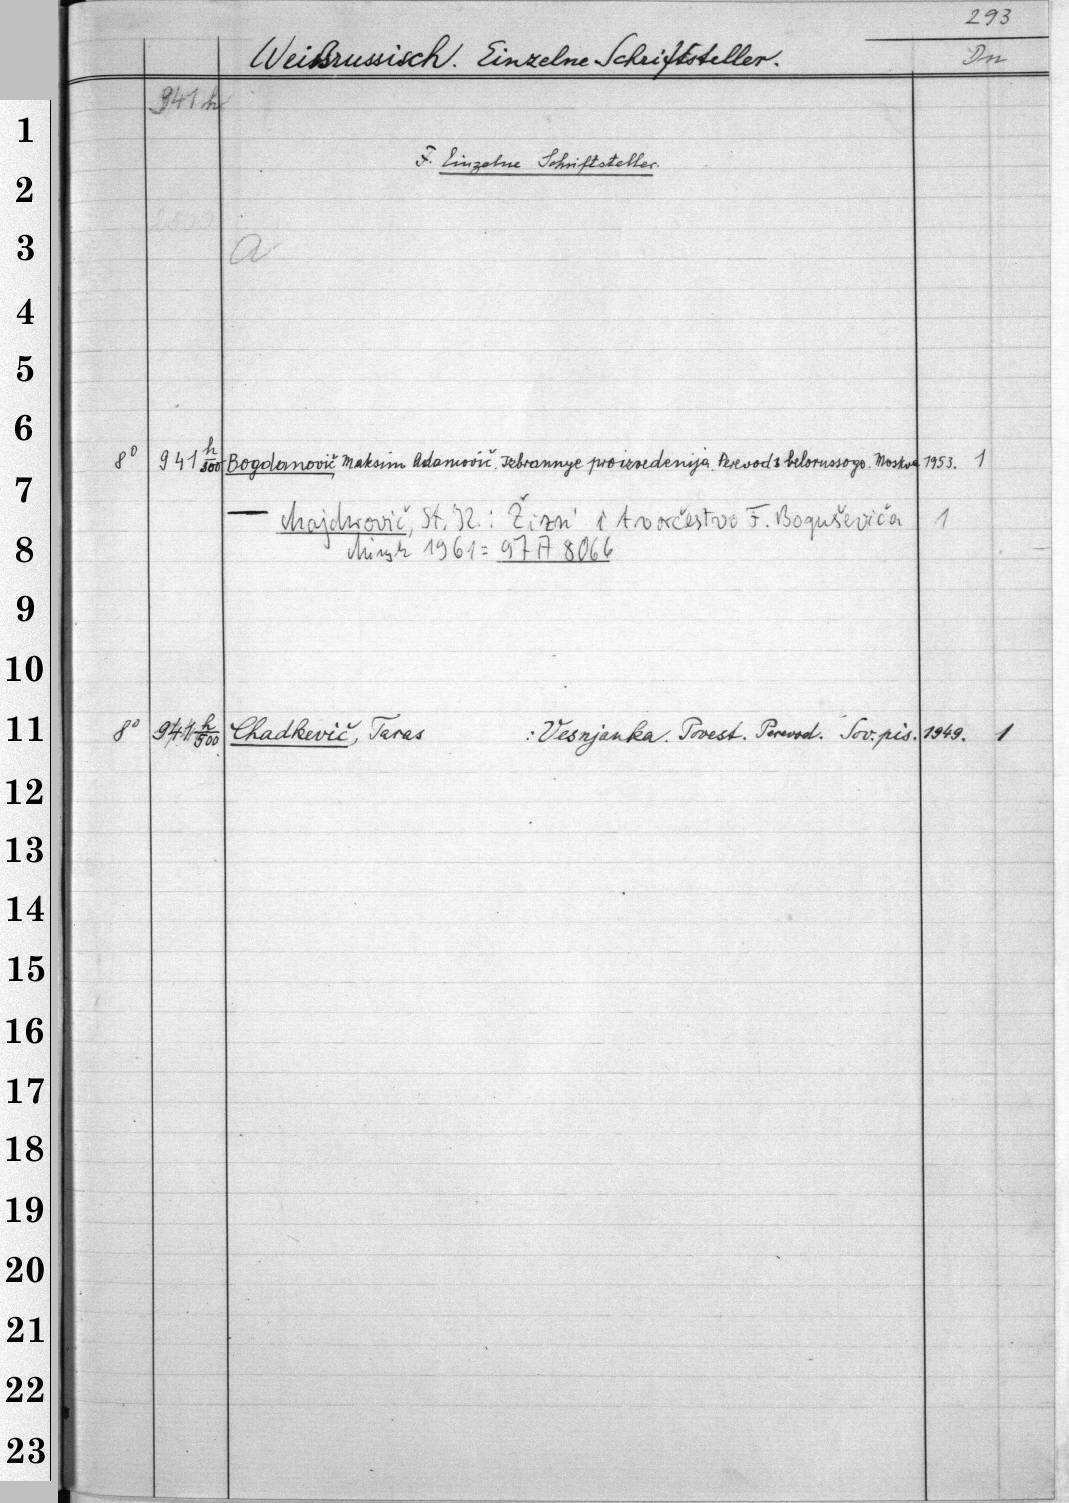 293
Weißrussisch. Einzelne Schriftsteller.
Dn
941 h
1
F. Einzelne Schriftsteller.
2
a
3
4
5
6
8° 941 h/300 Bogdanovič, Maksim Adamovič. Izbrannye proizvedenija. Perevod s belorussogo. Moskva 1953. 1
7
— Majchrovič, St. K.: Žizn' i tvorčestvo F. Boguševiča 1
8 Minsk 1961 = 97 A 8066
9
10
11 8° 941 h/500 Chadkevič, Taras : Vesnjanka. Povest. Perevod. Sov. pis. 1949. 1
12
13
14
15
16
17
18
19
20
21
22
23